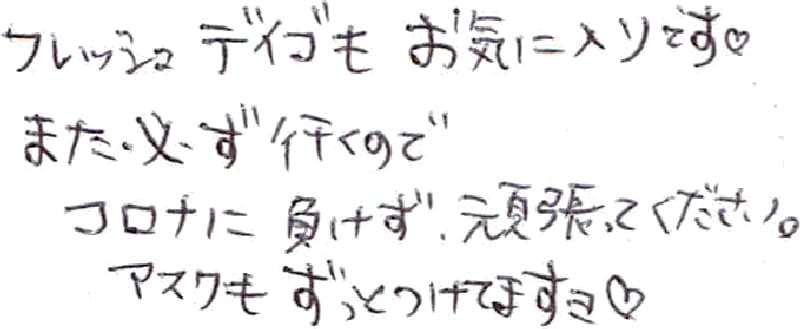 フレッシュ デイゴも お気に入りです♡
また必ず行くので
コロナに 負けず、頑張ってください。
マスクも ずっとつけてますヨ♡